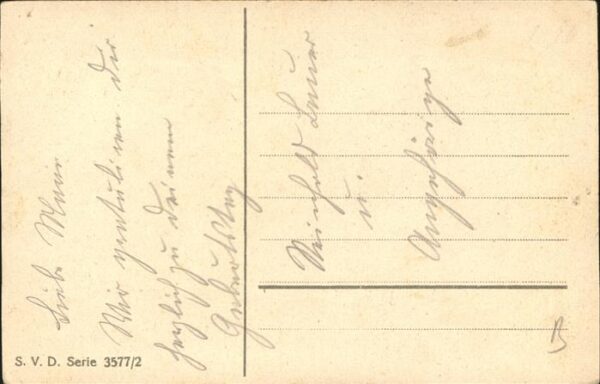 Liebe Mimi
Wir gratulieren dir
herzlich zu deinem
Geburtstag
Reinhold Lauer
u.
Angehörige
S. V. D. Serie 3577/2